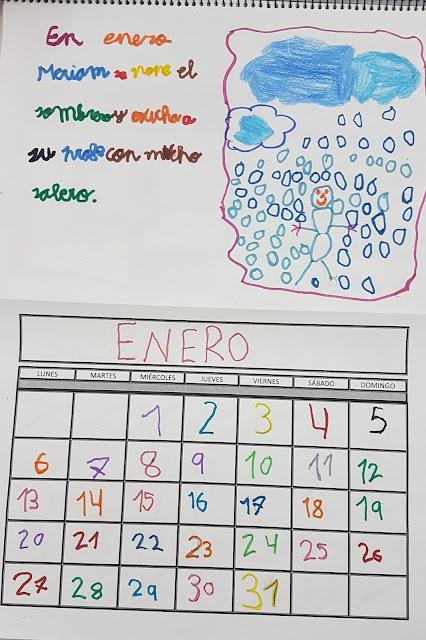 En enero
Meriam se pone el
sombrero y escucha a
su profe con mucho
salero.
ENERO
LUNES MARTES MIÉRCOLES JUEVES VIERNES SÁBADO DOMINGO
1 2 3 4 5
6 7 8 9 10 11 12
13 14 15 16 17 18 19
20 21 22 23 24 25 26
27 28 29 30 31